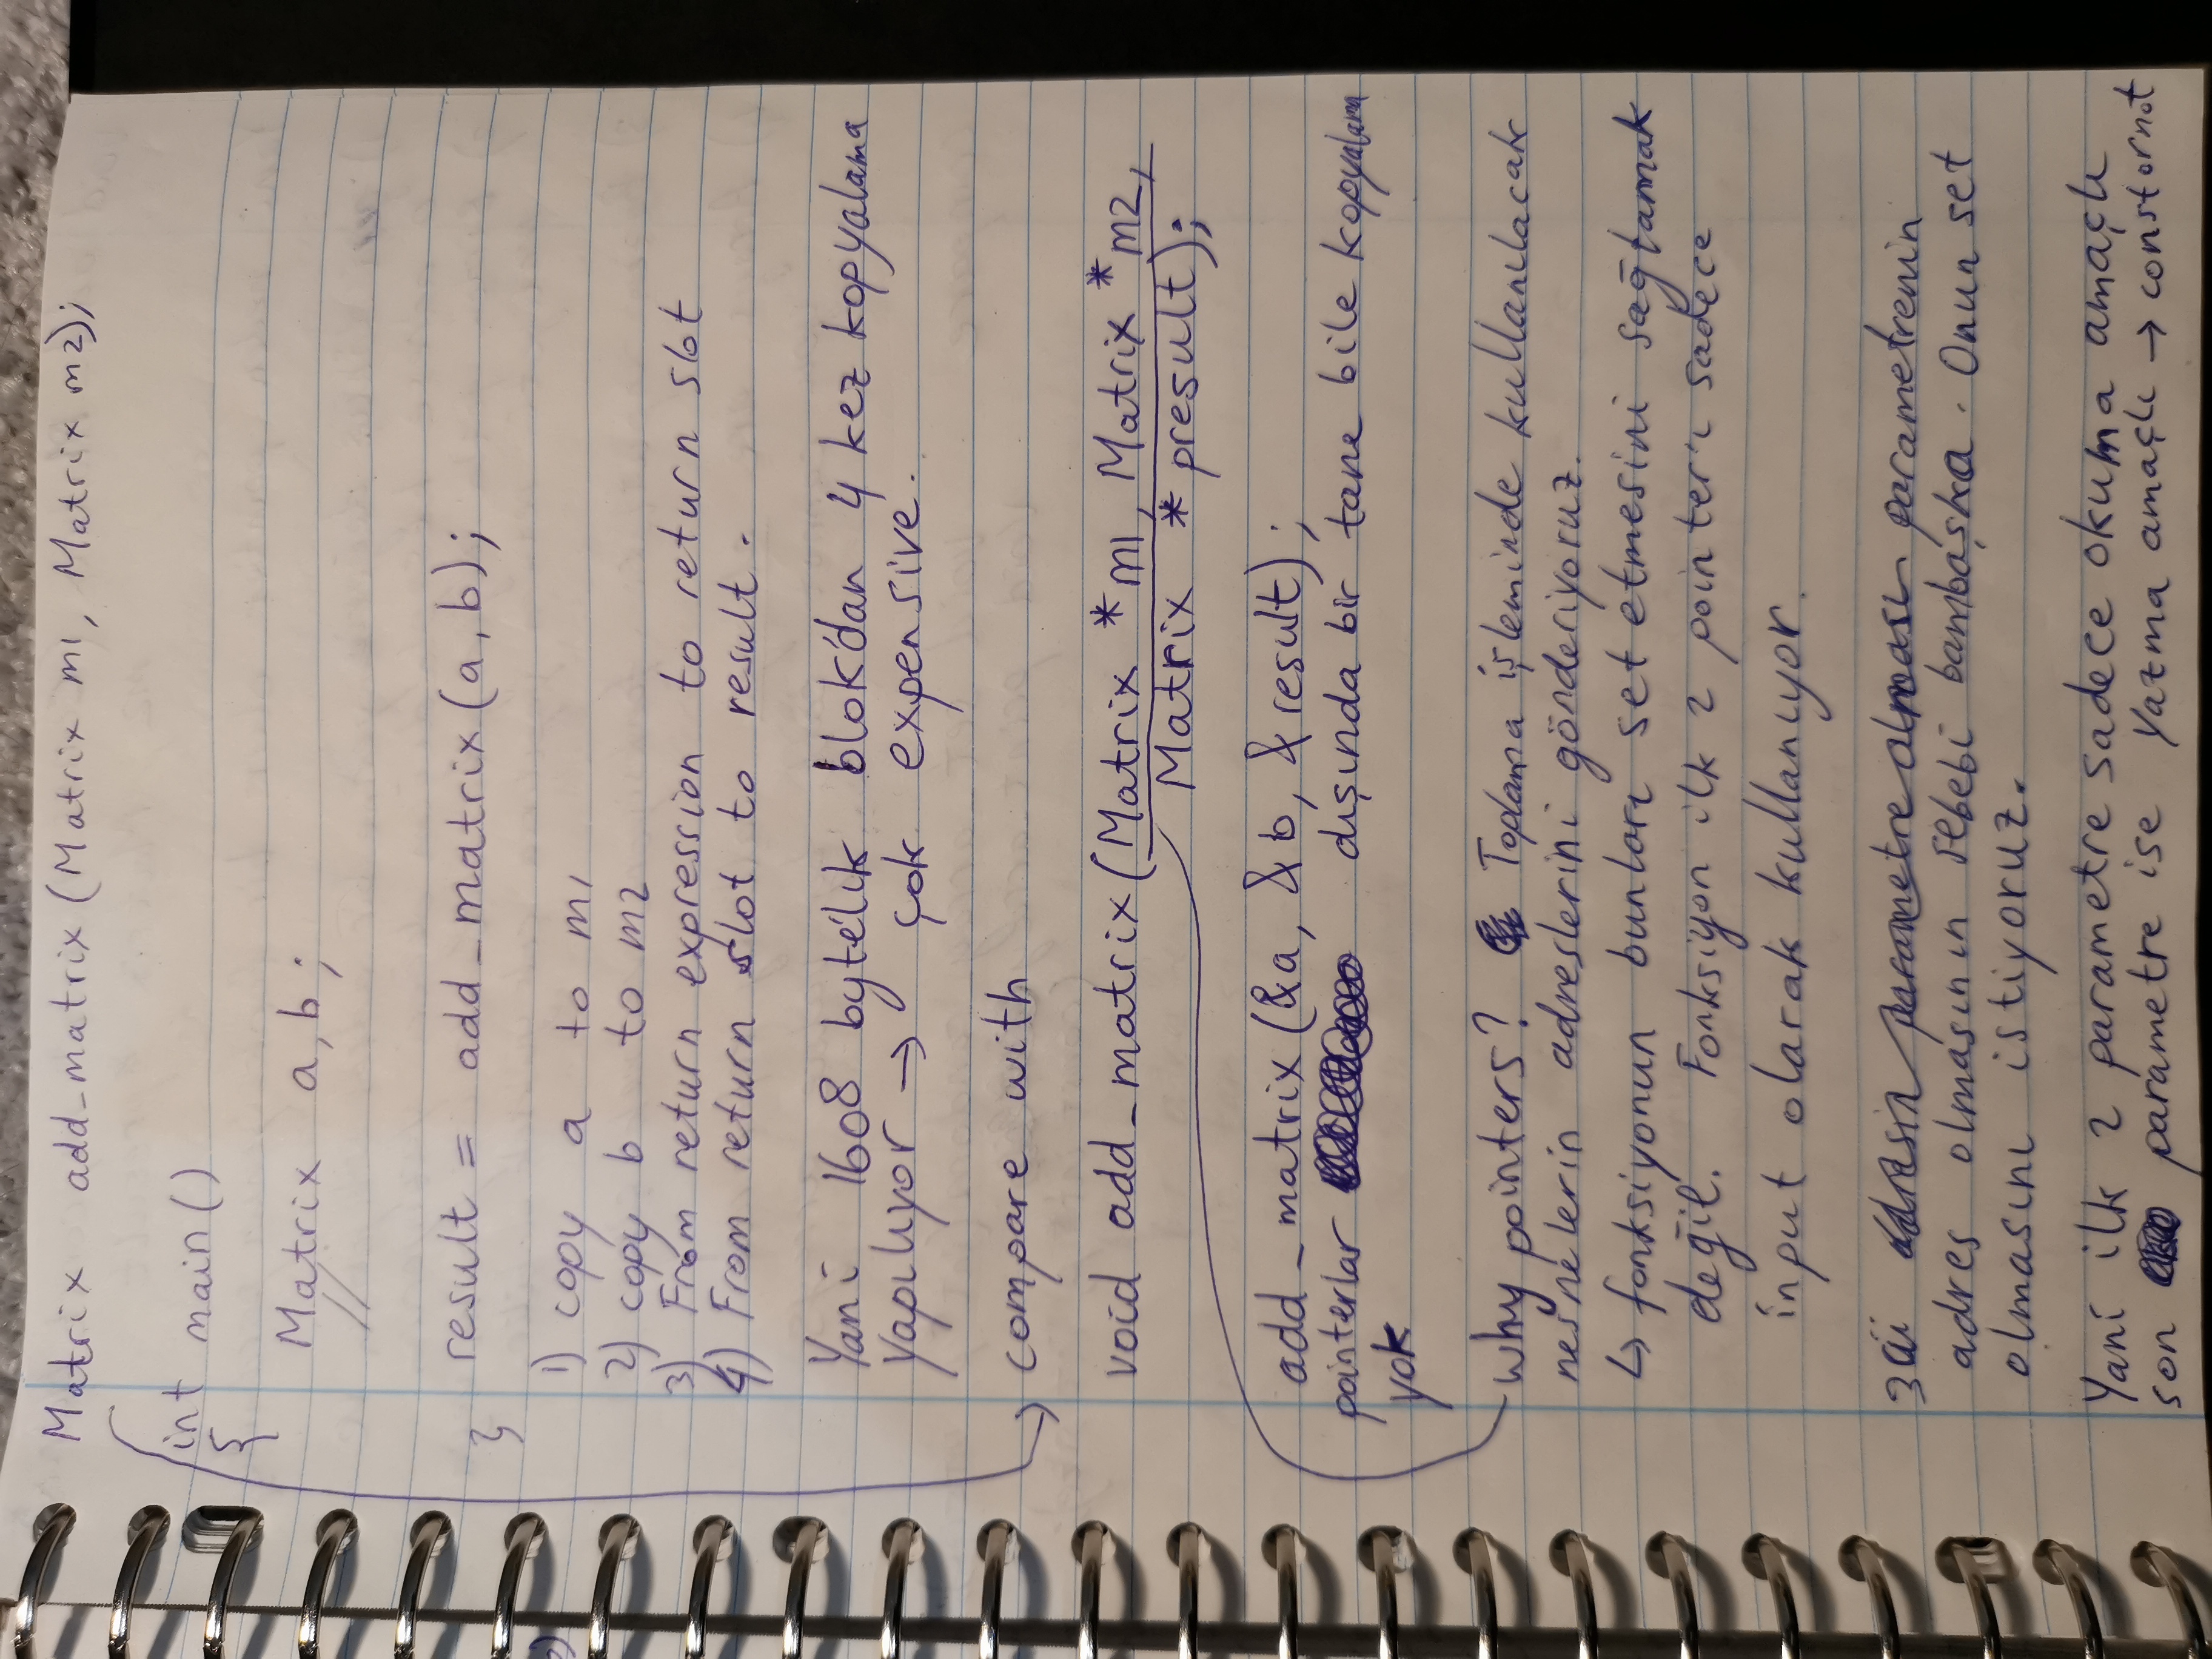 Matrix add_matrix (Matrix m1, Matrix m2);
int main()
{
Matrix a, b;
//
result = add_matrix(a, b);
}
1) copy a to m1
2) copy b to m2
3) From return expression to return slot
4) From return slot to result.
Yani 1608 byte'lık blok'dan 4 kez kopyalama
yapılıyor → çok expensive.
compare with
void add_matrix(Matrix *m1, Matrix *m2,
Matrix *presult);
add_matrix (&a, &b, &result);
pointerlar dışında bir tane bile kopyalama
yok
why pointers? Toplama işleminde kullanılacak
nesnelerin adreslerini gönderiyoruz.
↳ fonksiyonun bunları set etmesini sağlamak
değil. Fonksiyon ilk 2 pointer'ı sadece
input olarak kullanıyor.
3ü adresin parametre olması parametrenin
adres olmasının sebebi bambaşka. Onun set
olmasını istiyoruz.
Yani ilk 2 parametre sadece okuma amaçlı
son parametre ise yazma amaçlı → const or not